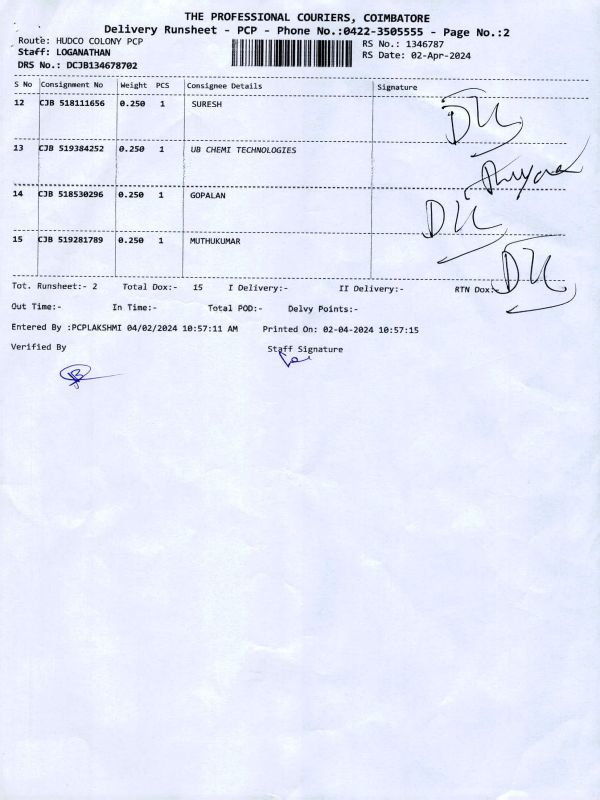 THE PROFESSIONAL COURIERS, COIMBATORE
Delivery Runsheet - PCP - Phone No.:0422-3505555 - Page No.:2
Route: HUDCO COLONY PCP RS No.: 1346787
Staff: LOGANATHAN RS Date: 02-Apr-2024
DRS No.: DCJB134678702
S No Consignment No Weight PCS Consignee Details Signature
12 CJB 518111656 0.250 1 SURESH
13 CJB 519384252 0.250 1 UB CHEMI TECHNOLOGIES
14 CJB 518530296 0.250 1 GOPALAN
15 CJB 519281789 0.250 1 MUTHUKUMAR
Tot. Runsheet:- 2 Total Dox:- 15 I Delivery:- II Delivery:- RTN Dox:-
Out Time:- In Time:- Total POD:- Delvy Points:-
Entered By :PCPLAKSHMI 04/02/2024 10:57:11 AM Printed On: 02-04-2024 10:57:15
Verified By Staff Signature